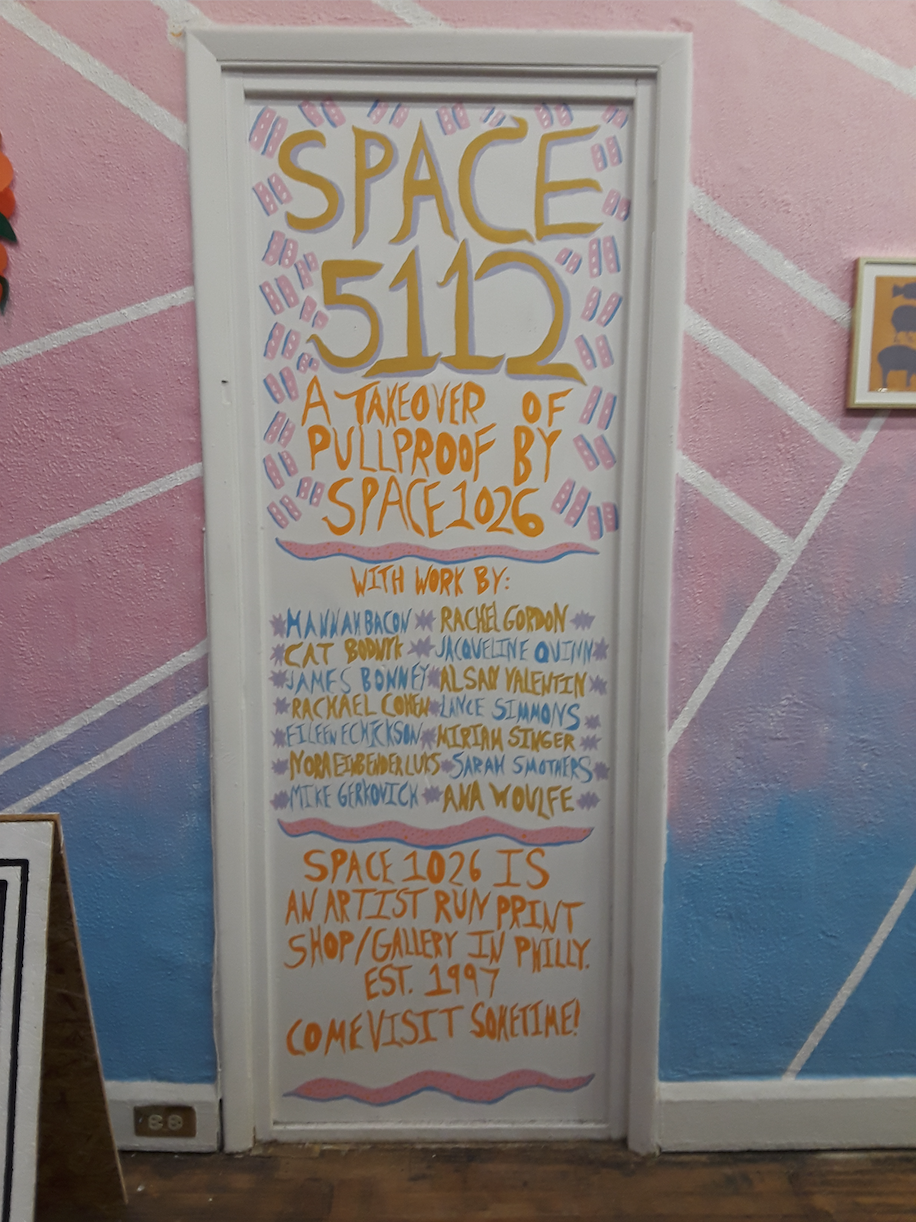 SPACE
5112
A TAKEOVER OF
PULLPROOF BY
SPACE1026
WITH WORK BY:
HANNAH BACON RACHEL GORDON
CAT BODNYK JACQUELINE QUINN
JAMES BONNEY ALSADY VALENTIN
RACKAEL COHEN LANCE SIMMONS
EILEEN ECHICKSON MIRIAM SINGER
NORA EINBENDER LUKS SARAH SMOTHERS
MIKE GERKOVICH ANA WOULFE
SPACE 1026 IS
AN ARTIST RUN PRINT
SHOP/GALLERY IN PHILLY.
EST. 1997
COME VISIT SOMETIME!